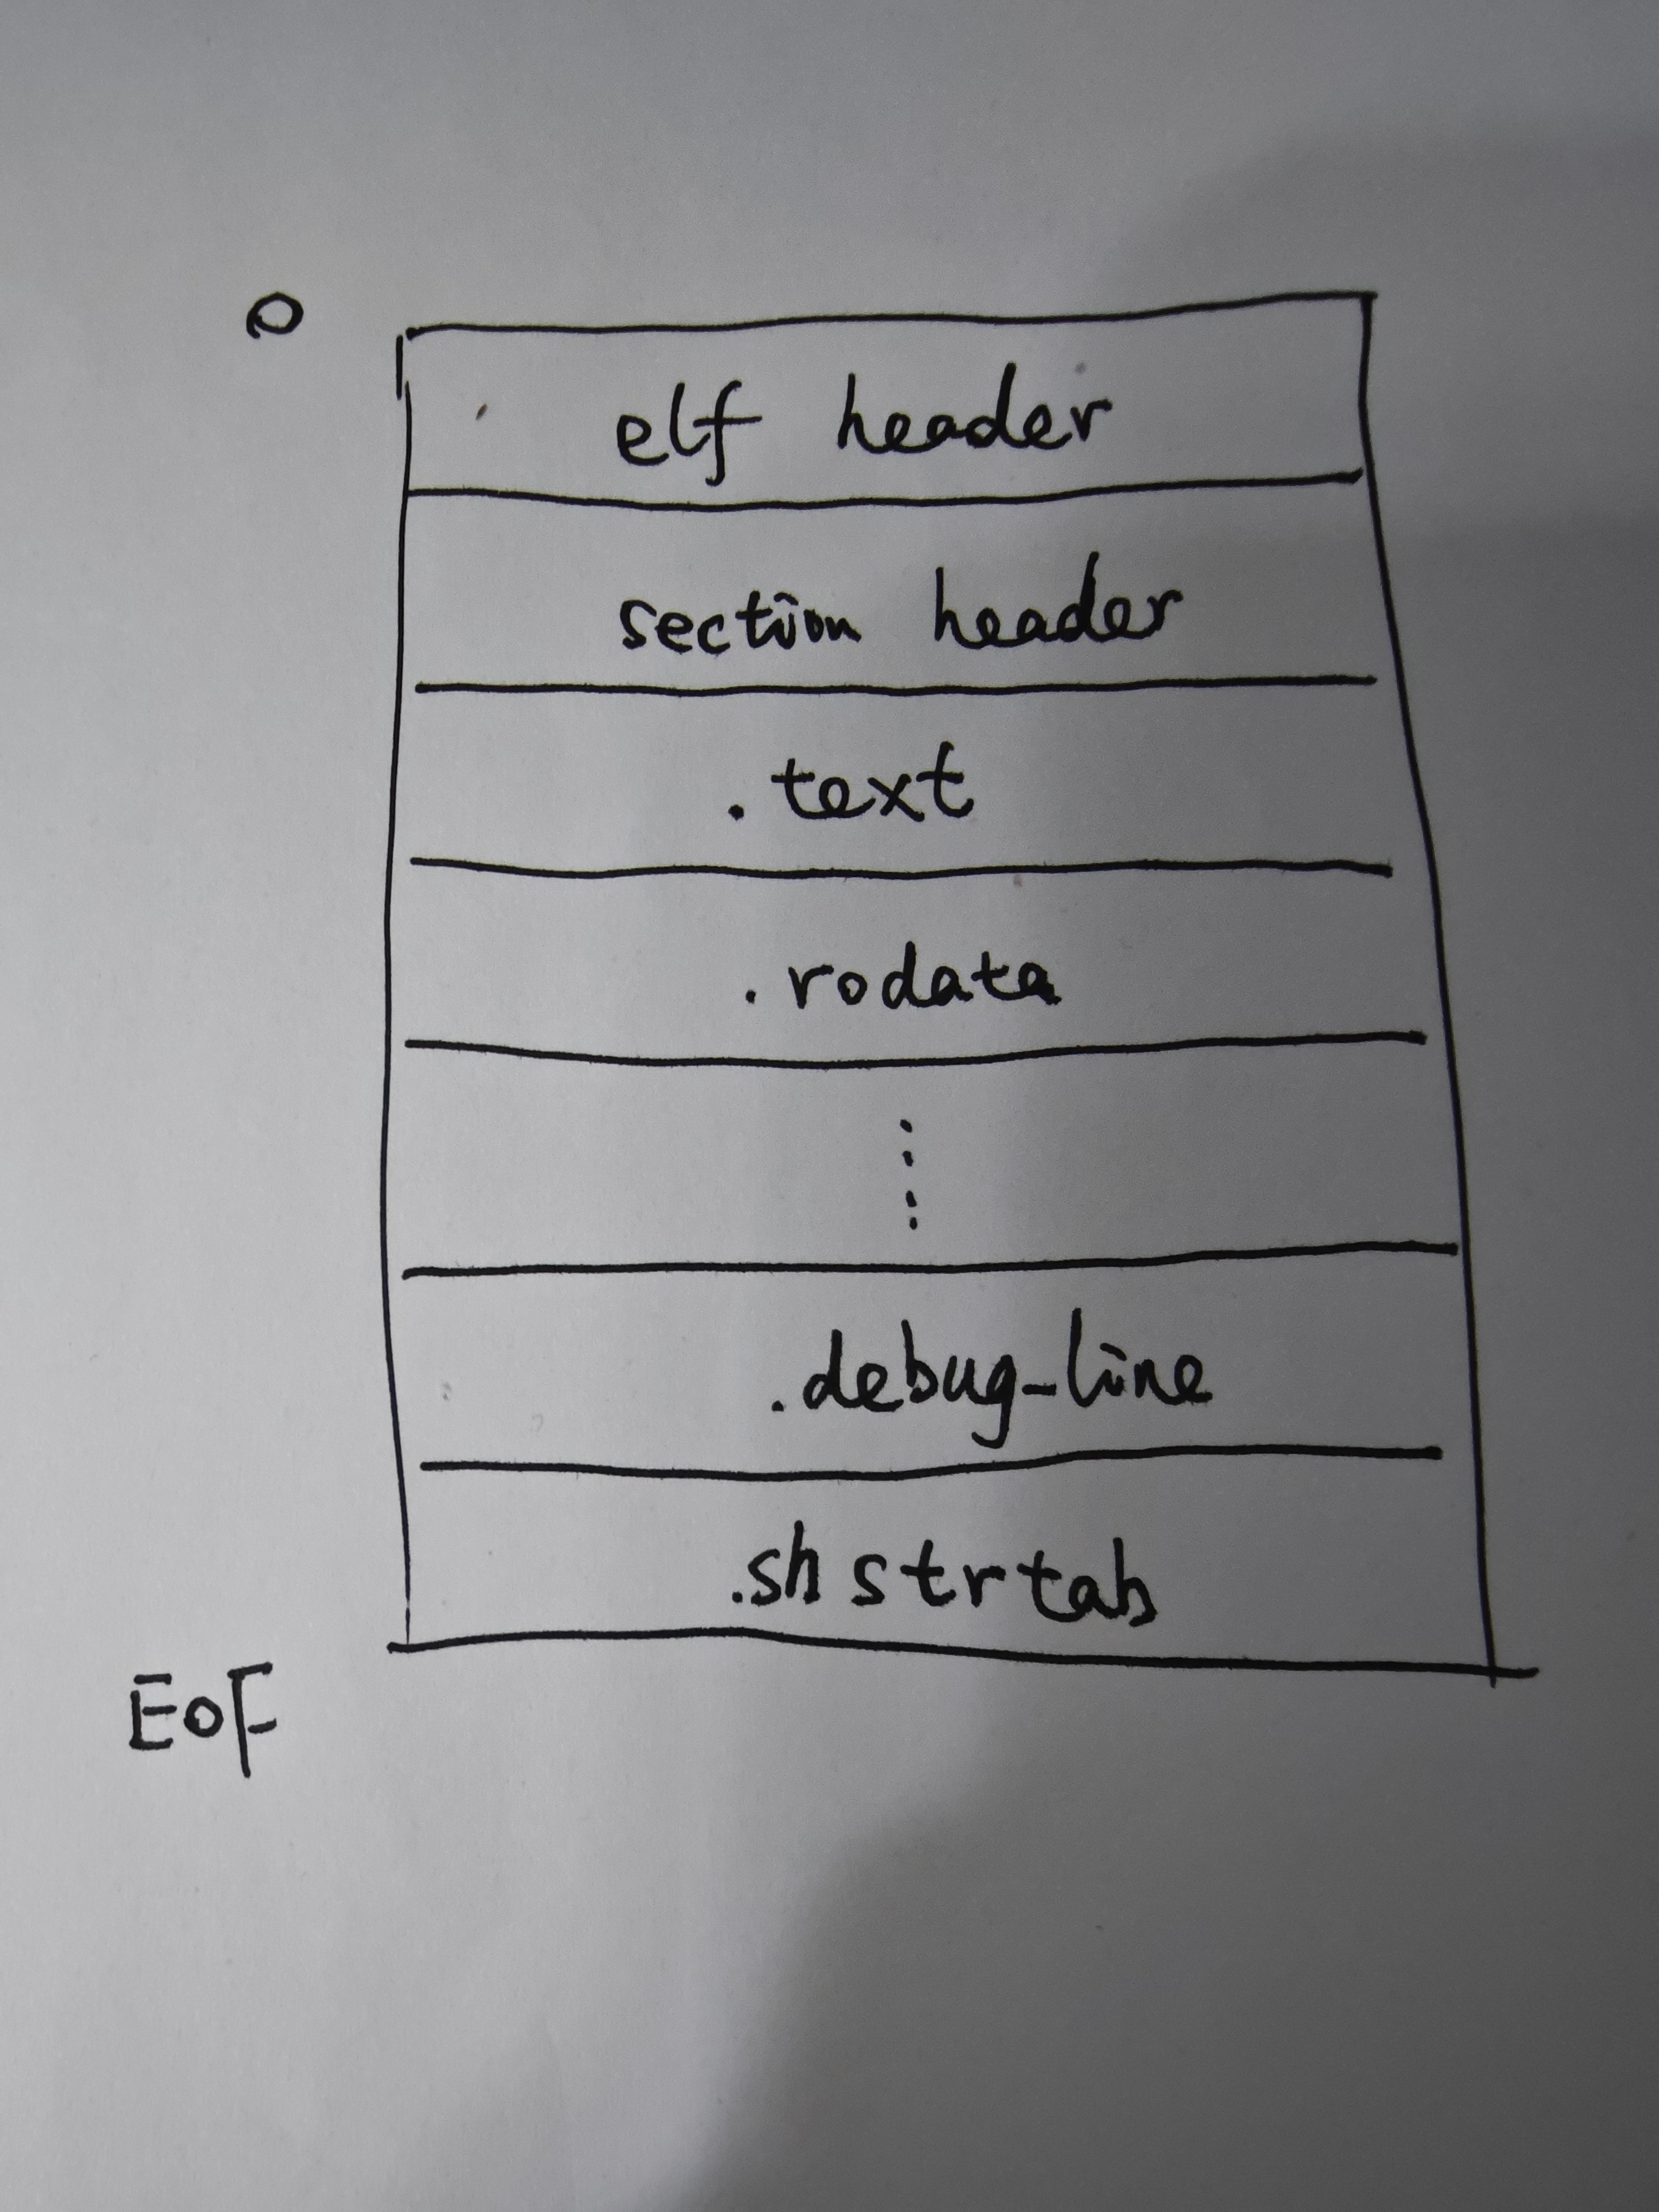 0
elf header
section header
.text
.rodata
⋮
.debug_line
.shstrtab
EOF